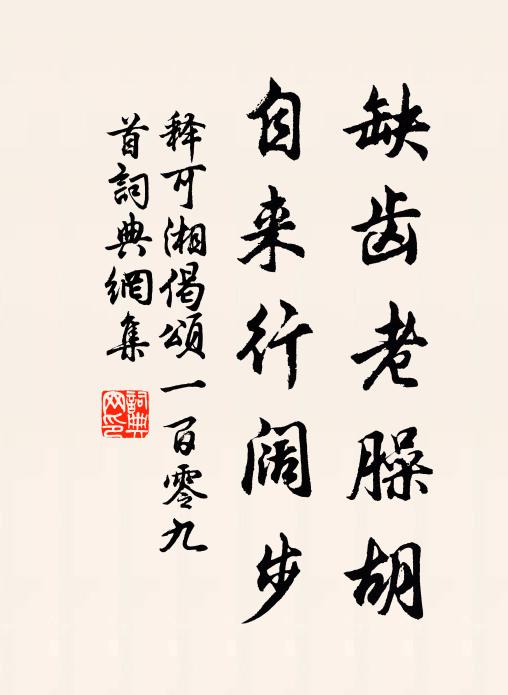 缺齿老臊胡
自来行阔步
释可湘偈颂一百零九
首詞典網集
詞典网印